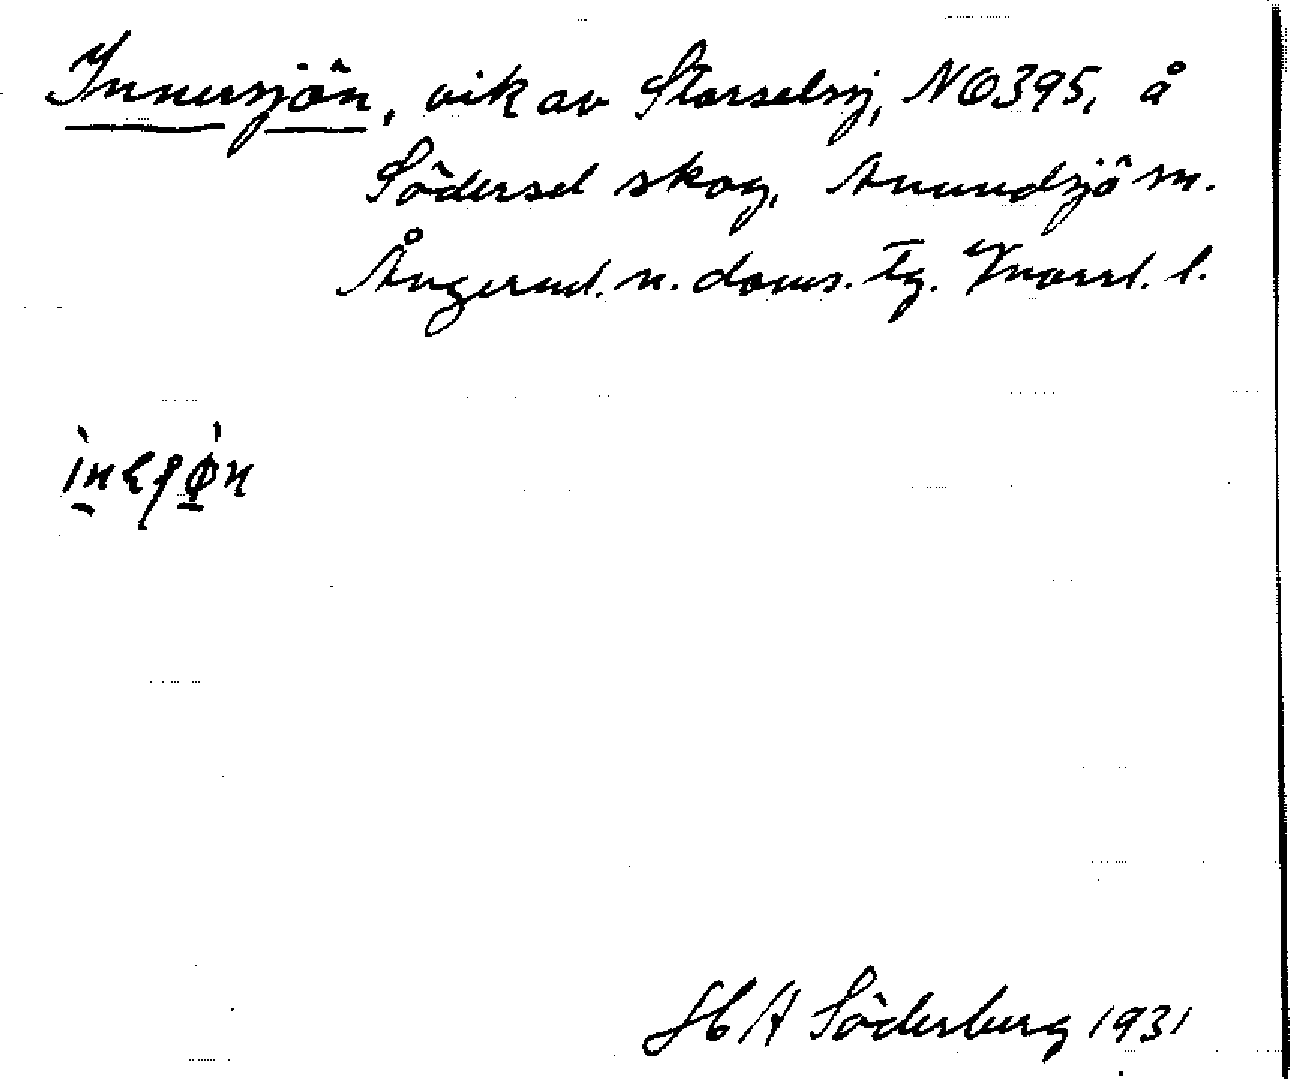 Innersjön, vik av Storselsj, NO395, å
Södersel skog, Anundsjö sn.
Ångerml. n. doms. tg. Vnorrl. l.
H A Söderberg 1931